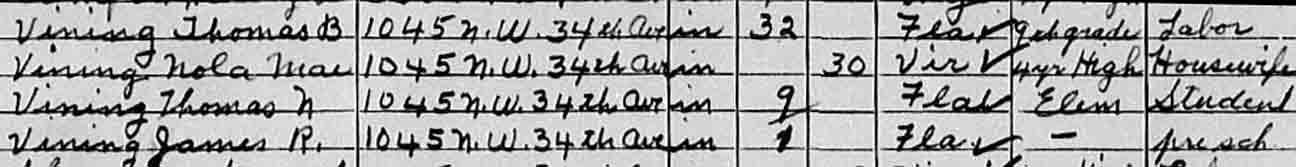 Vining Thomas B 1045 N.W. 34th Ave in 32 Fla 9th grade Labor
Vining Nola Mae 1045 N.W. 34th Ave in 30 Vir 4yr High Housewife
Vining Thomas N 1045 N.W. 34th Ave in 9 Fla Elem Student
Vining James R. 1045 N.W. 34th Ave in 1 Fla — pre sch